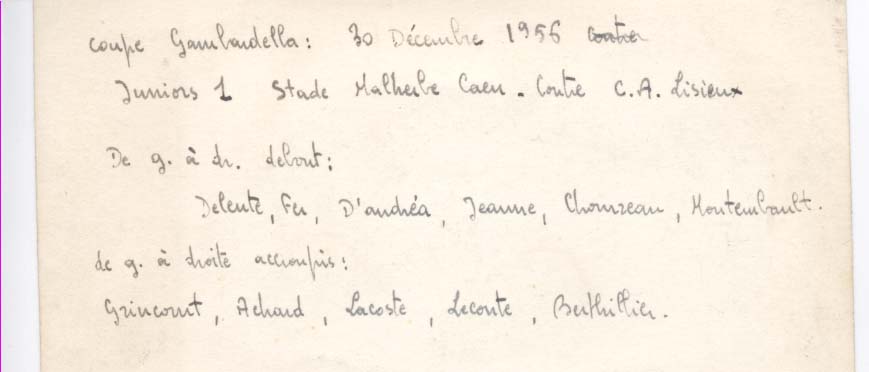 Coupe Gambardella: 30 Décembre 1956 contre
Juniors 1 Stade Malherbe Caen - Contre C.A. Lisieux
De g. à dr. debout:
Delente, Feu, D'andréa, Jeanne, Chomzeau, Montembault.
de g. à droite accroupis:
Grincourt, Achard, Lacoste, Leconte, Berthillier.